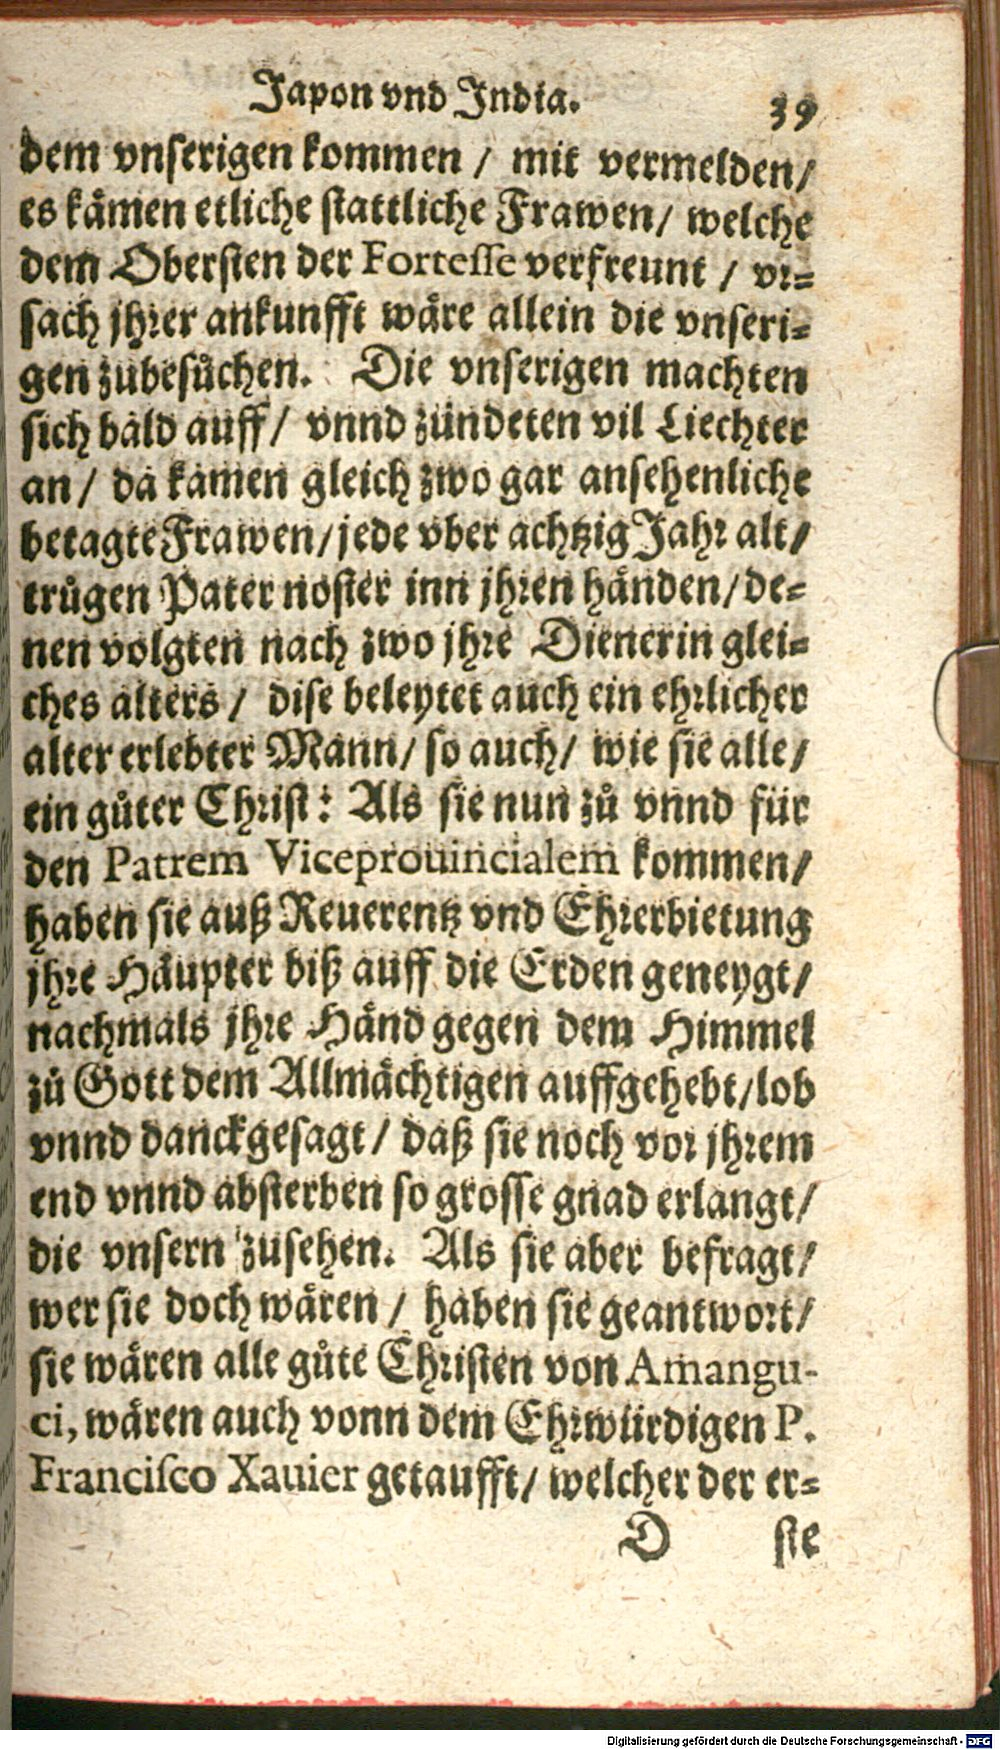 Japon vnd India. 39
dem vnserigen kommen / mit vermelden /
es kämen etliche stattliche Frawen / welche
dem Obersten der Fortesse verfreunt / vr=
sach jhrer ankunfft wäre allein die vnseri=
gen zubesůchen. Die vnserigen machten
sich bald auff / vnnd zündeten vil Liechter
an / da kamen gleich zwo gar ansehenliche
betagte Frawen / jede vber achtzig Jahr alt /
trůgen Pater noster inn jhren händen / de=
nen volgten nach zwo jhre Dienerin glei=
ches alters / dise beleytet auch ein ehrlicher
alter erlebter Mann / so auch / wie sie alle /
ein gůter Christ: Als sie nun zů vnnd für
den Patrem Viceprouincialem kommen /
haben sie auß Reuerentz vnd Ehrerbietung
jhre Häupter biß auff die Erden geneygt /
nachmals jhre Händ gegen dem Himmel
zů Gott dem Allmächtigen auffgehebt / lob
vnnd danckgesagt / daß sie noch vor jhrem
end vnnd absterben so grosse gnad erlangt /
die vnsern zusehen. Als sie aber befragt /
wer sie doch wären / haben sie geantwort /
sie wären alle gůte Christen von Amangu-
ci, wären auch vonn dem Ehrwürdigen P.
Francisco Xauier getaufft / welcher der er=
D sie
Digitalisierung gefördert durch die Deutsche Forschungsgemeinschaft - DFG